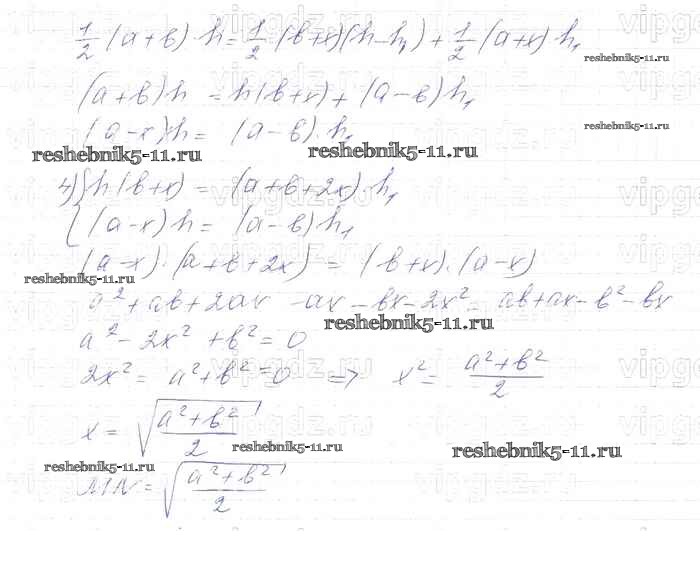 1/2 (a+в)·h = 1/2 (в+x)(h-h₁) + 1/2 (a+x)·h₁
reshebnik5-11.ru
(a+в)h = h(в+x) + (a-в)h₁
reshebnik5-11.ru
(a-x)·h = (a-в)·h₁
reshebnik5-11.ru reshebnik5-11.ru
4) { h(в+x) = (a+в+2x)·h₁
(a-x)h = (a-в)h₁
(a-x)·(a+в+2x) = (в+x)·(a-x)
reshebnik5-11.ru
a²+aв+2ax -ax-вx-2x² = aв+ax-в²-вx
reshebnik5-11.ru
a²-2x²+в²=0
2x² = a²+в²=0 => x² = (a²+в²)/2
x = √((a²+в²)/2)
reshebnik5-11.ru reshebnik5-11.ru
reshebnik5-11.ru
MN = √((a²+в²)/2)
vipgdz.ru